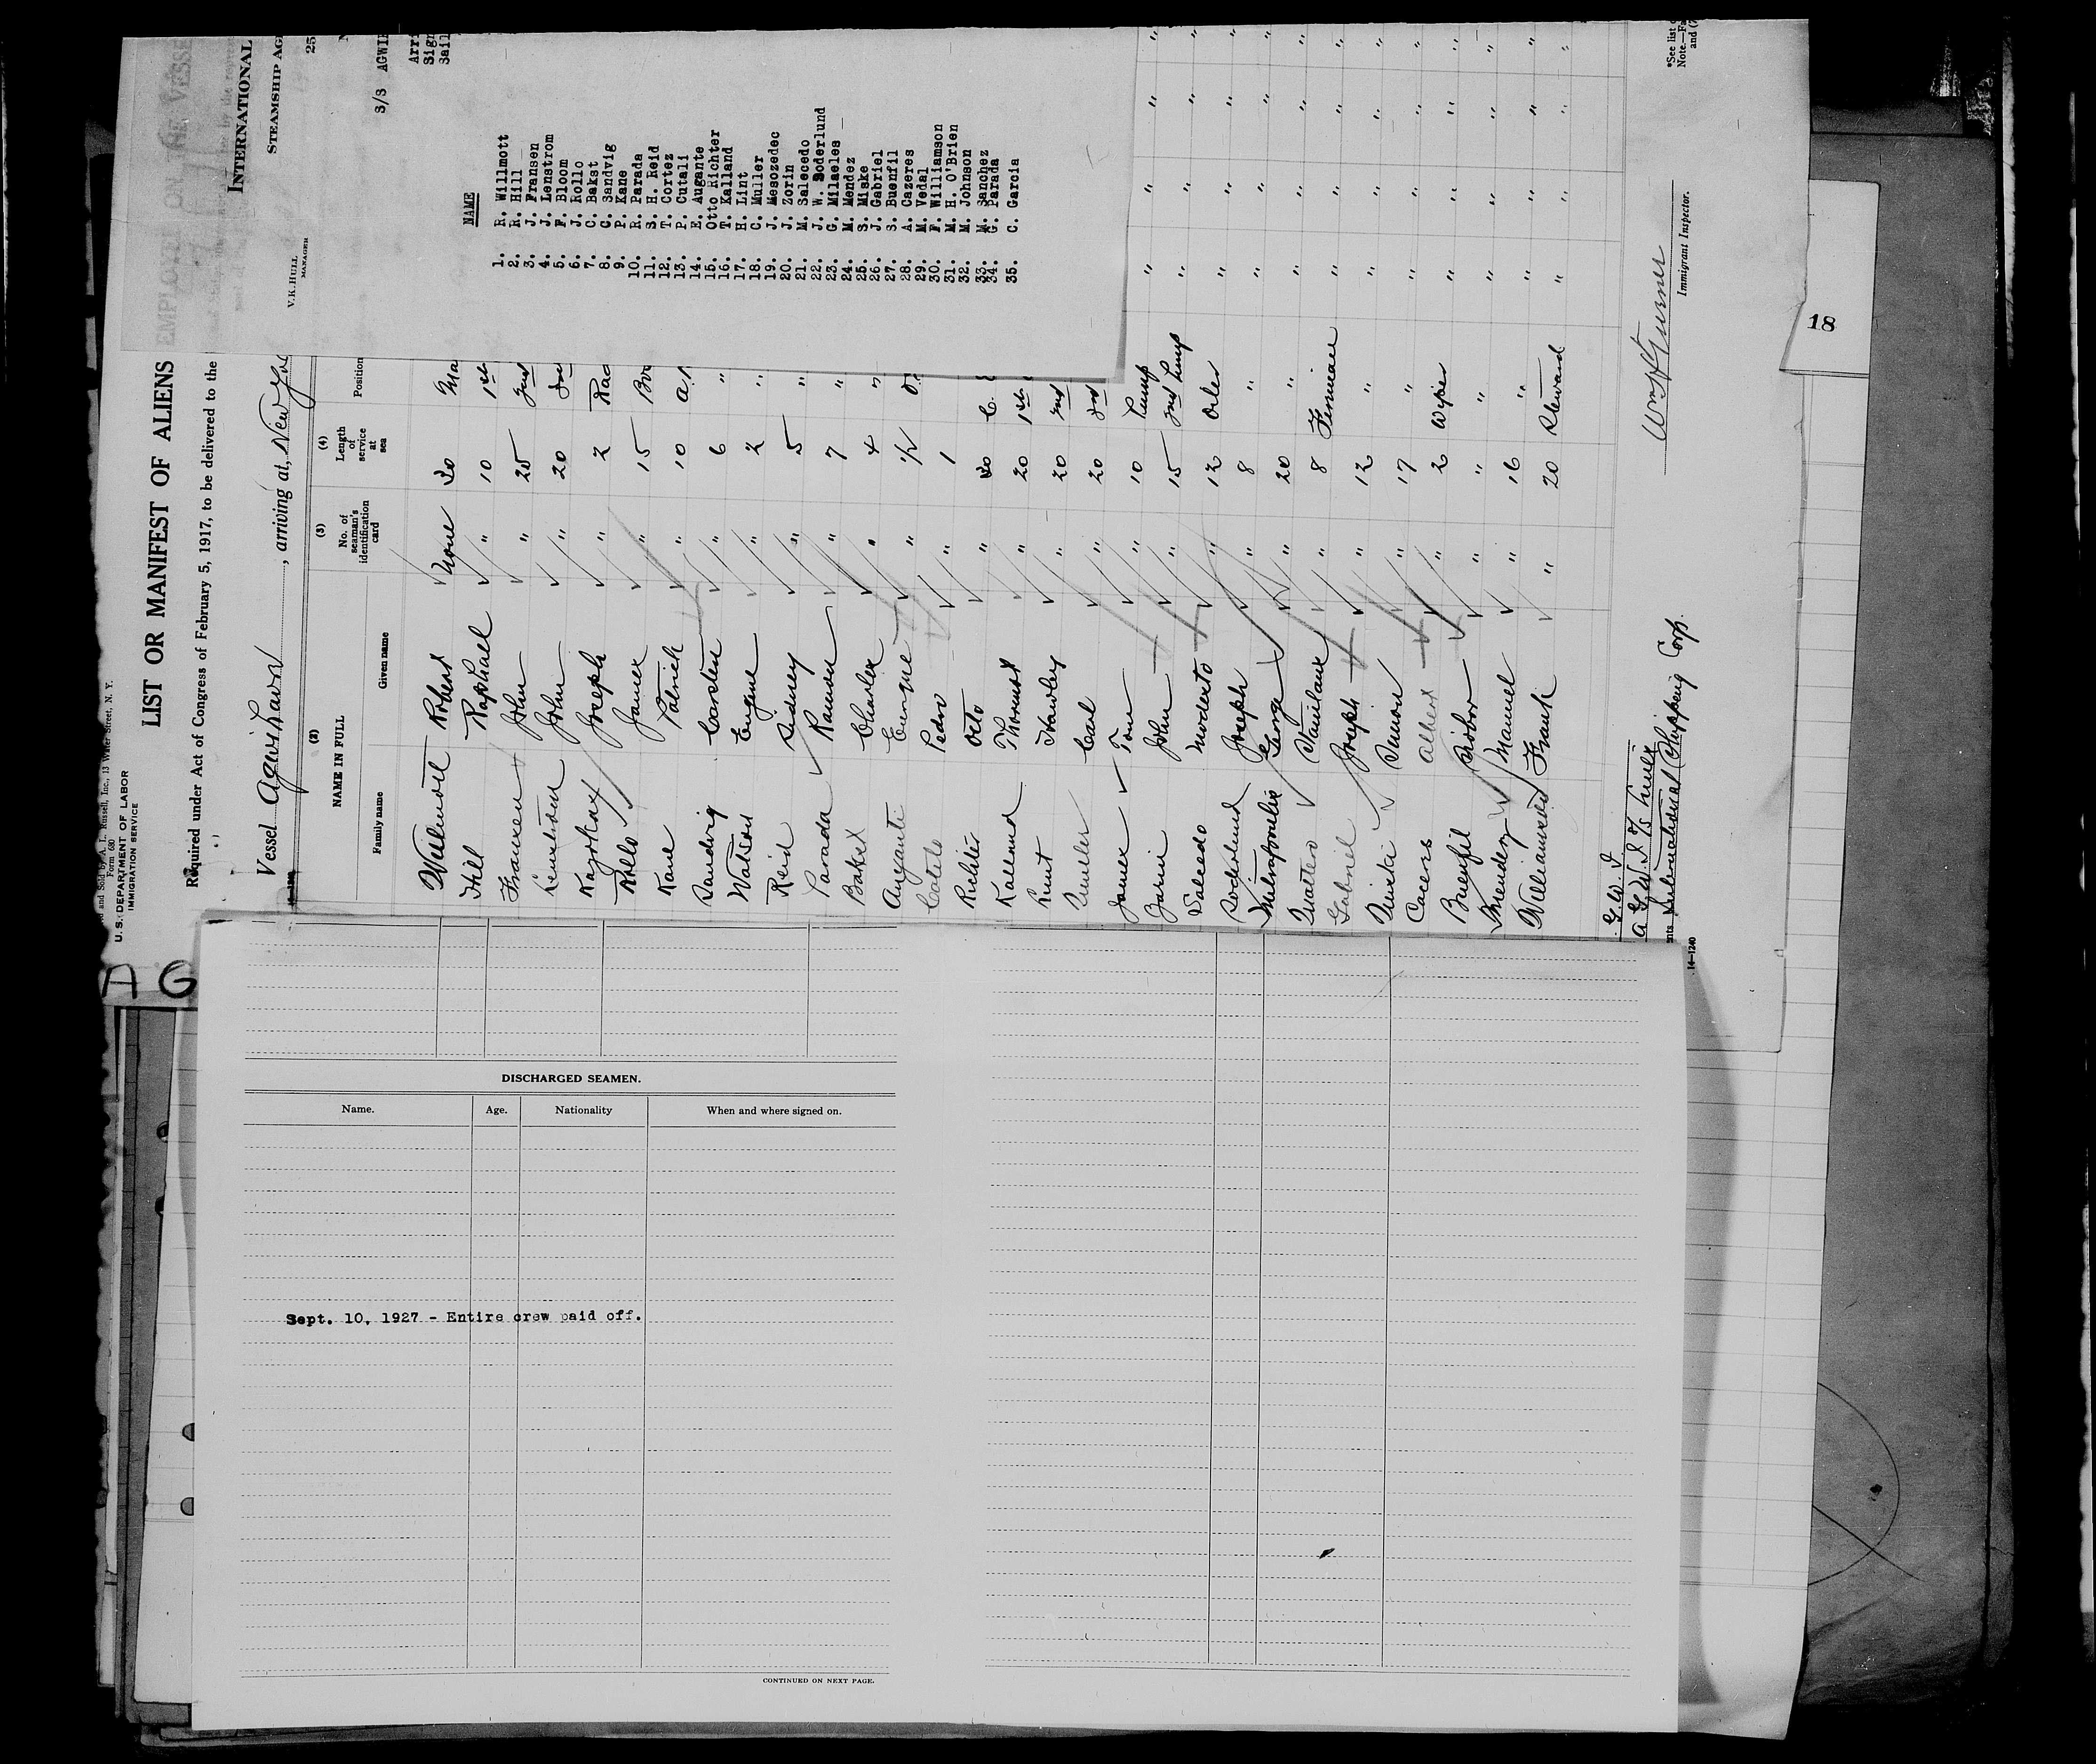 INTERNATIONAL
STEAMSHIP AG
25
V.K. HULL
MANAGER
S/S AGWI
Arri
Sign
Sail
NAME
1. R. Willmott
2. R. Hill
3. J. Fransen
4. J. Lenstrom
5. F. Bloom
6. J. Rollo
7. C. Bakst
8. C. Sandvig
9. P. Kane
10. R. Parada
11. S. H. Reid
12. T. Cortez
13. P. Cutali
14. E. Augante
15. Otto Richter
16. T. Kalland
17. H. Lint
18. C. Muller
19. J. Mesozedec
20. J. Zorin
21. M. Salecedo
22. J. W. Soderlund
23. G. Milaeles
24. M. Mendez
25. S. Miske
26. J. Gabriel
27. S. Buenfil
28. A. Cazeres
29. M. Vedal
30. F. Williamson
31. M. H. O'Brien
32. M. Johnson
33. M. Sanchez
34. G. Parada
35. C. Garcia
and Sold by A. L. Russell, Inc., 13 Water Street, N. Y.
Form 680
U. S. DEPARTMENT OF LABOR
IMMIGRATION SERVICE
LIST OR MANIFEST OF ALIENS EMPLOYE ON THE VESSE
Required under Act of Congress of February 5, 1917, to be delivered to the
Vessel Agwihavre, arriving at, New Yo
(2) (3) (4)
NAME IN FULL No. of seaman's identification card Length of service at sea Position
Family name Given name
Willmott Robert None 30 Ma
Hill Raphael " 10 1st
Fransen John " 25 2nd
Lenstrom John " 20 3rd
Joseph " 2 Rad
Rollo James " 15 Bo
Kane Patrick " 10 A.
Sandvig Carsten " 6 "
Watson Eugene " 2 "
Reid Sidney " 5 "
Parada Ramon " 7 "
Bakst Charles " 4 "
Augante Enrique " 1/2 O.
Pedro " 1
Richter Otto " 30 C.
Kalland Thomas " 20 1st
Hawley " 20 2nd
Carl " 20 3rd
James Tom " 10 Pump
Zorin John " 15 2nd Pump
Salcedo Modesto " 12 Oiler
Soderlund Joseph " 8 "
George " 20 "
Stanilaus " 8 Fireman
Gabriel Joseph " 12 "
Simon " 17 "
Caceres Albert " 2 Wiper
Buenfil " " "
Mendez Manuel " 16 "
Williamson Frank " 20 Steward
International Shipping Corp.
Immigrant Inspector.
14—1240
*See list
Note.—Fa
and (7
18
AG
DISCHARGED SEAMEN.
Name. Age. Nationality When and where signed on.
Sept. 10, 1927 - Entire crew paid off.
CONTINUED ON NEXT PAGE.